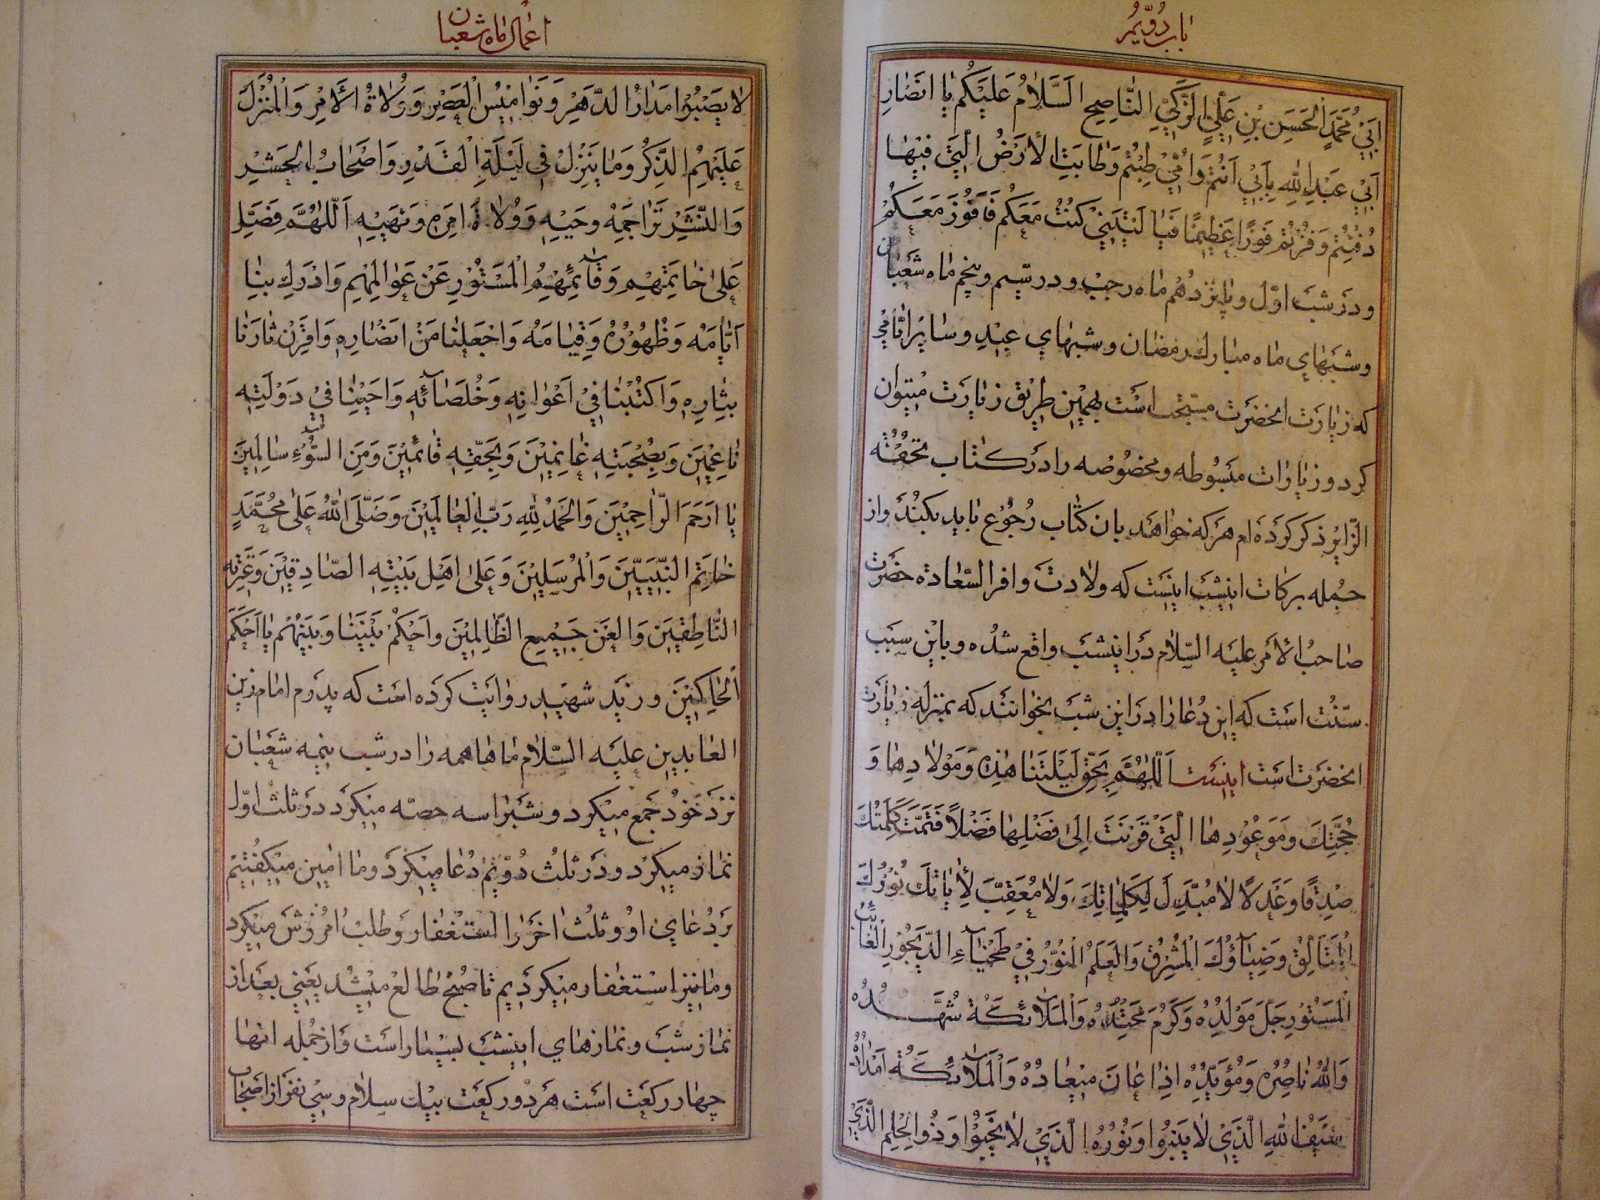 باب دویم
ابی محمد الحسن بن علی الزکی الناصح السلام علیکم یا انصار
ابی عبد الله بابی انتم وامی طبتم وطابت الارض التی فیها
دفنتم وفزتم فوزا عظیما فیا لیتنی کنت معکم فافوز معکم
ودر شب اول وپانزدهم ماه رجب ودر سیم وپنجم ماه شعبان
وشبهای ماه مبارک رمضان وشبهای عید وسایر ایامی
که زیارت انحضرت مستحب است بهمین طریق زیارت میتوان
کرد وزیارات مبسوطه ومخصوصه را در کتاب تحفة
الزایر ذکر کرده ام هرکه خواهد بان کتاب رجوع باید بکند واز
جمله برکات اینشب اینست که ولادت وافر السعادة حضرت
صاحب الامر علیه السلام در اینشب واقع شده وباین سبب
سنت است که این دعا را در این شب بخوانند که بمنزله زیارت
انحضرت است اینست اللهم بحق لیلتنا هذه ومولادها و
حجتك وموعودها التی قرنت الی فضلها فضلا فتمت کلمتك
صدقا وعدلا لا مبدل لکلماتك ولا معقب لایاتك نورك
المتالق وضیاؤك المشرق والعلم النور فی طخیاء الدیجور الغائب
المستور جل مولده وکرم محتده والملائکة شهده
والله ناصره ومؤیده اذا عان میعاده والملائکة امداده
سیف الله الذی لا ینبوا ونوره الذی لا یخبوا وذو الحلم الذی
اعمال ماه شعبان
لا یصبوا مدار الدهر ونوامیس العصر وولاة الامر والمنزل
علیهم الذکر وما ینزل فی لیلة القدر واصحاب الحشر
والنشر تراجمة وحیه وولاة امره ونهیه اللهم فصل
علی خاتمهم وقائمهم المستور عن عوالمهم وادرك بنا
ایامه وظهوره وقیامه واجعلنا من انصاره واقرن ثارنا
بثاره واکتبنا فی اعوانه وخلصائه واحینا فی دولته
ناعمین وبصحبته غانمین وبحقه قائمین ومن السوء سالمین
یا ارحم الراحمین والحمد لله رب العالمین وصلی الله علی محمد
خاتم النبیین والمرسلین وعلی اهل بیته الصادقین وعترته
الناطقین والعن جمیع الظالمین واحکم بیننا وبینهم یا احکم
الحاکمین وزید شهید روایت کرده است که پدرم امام زین
العابدین علیه السلام ماها همه را در شب نیمه شعبان
نزد خود جمع میکرد وشبرا سه حصه میکرد در ثلث اول
نماز میکرد ودر ثلث دویم دعا میکرد وما امین میکفتیم
بر دعای او وثلث اخر را استغفار وطلب امرزش میکرد
وما نیز استغفار میکردیم تا صبح طالع میشد یعنی بعد از
نماز شب ونمازهای اینشب بسیار است واز جمله انها
چهار رکعت است هر دو رکعت بیك سلام وسی نفر از اصحاب